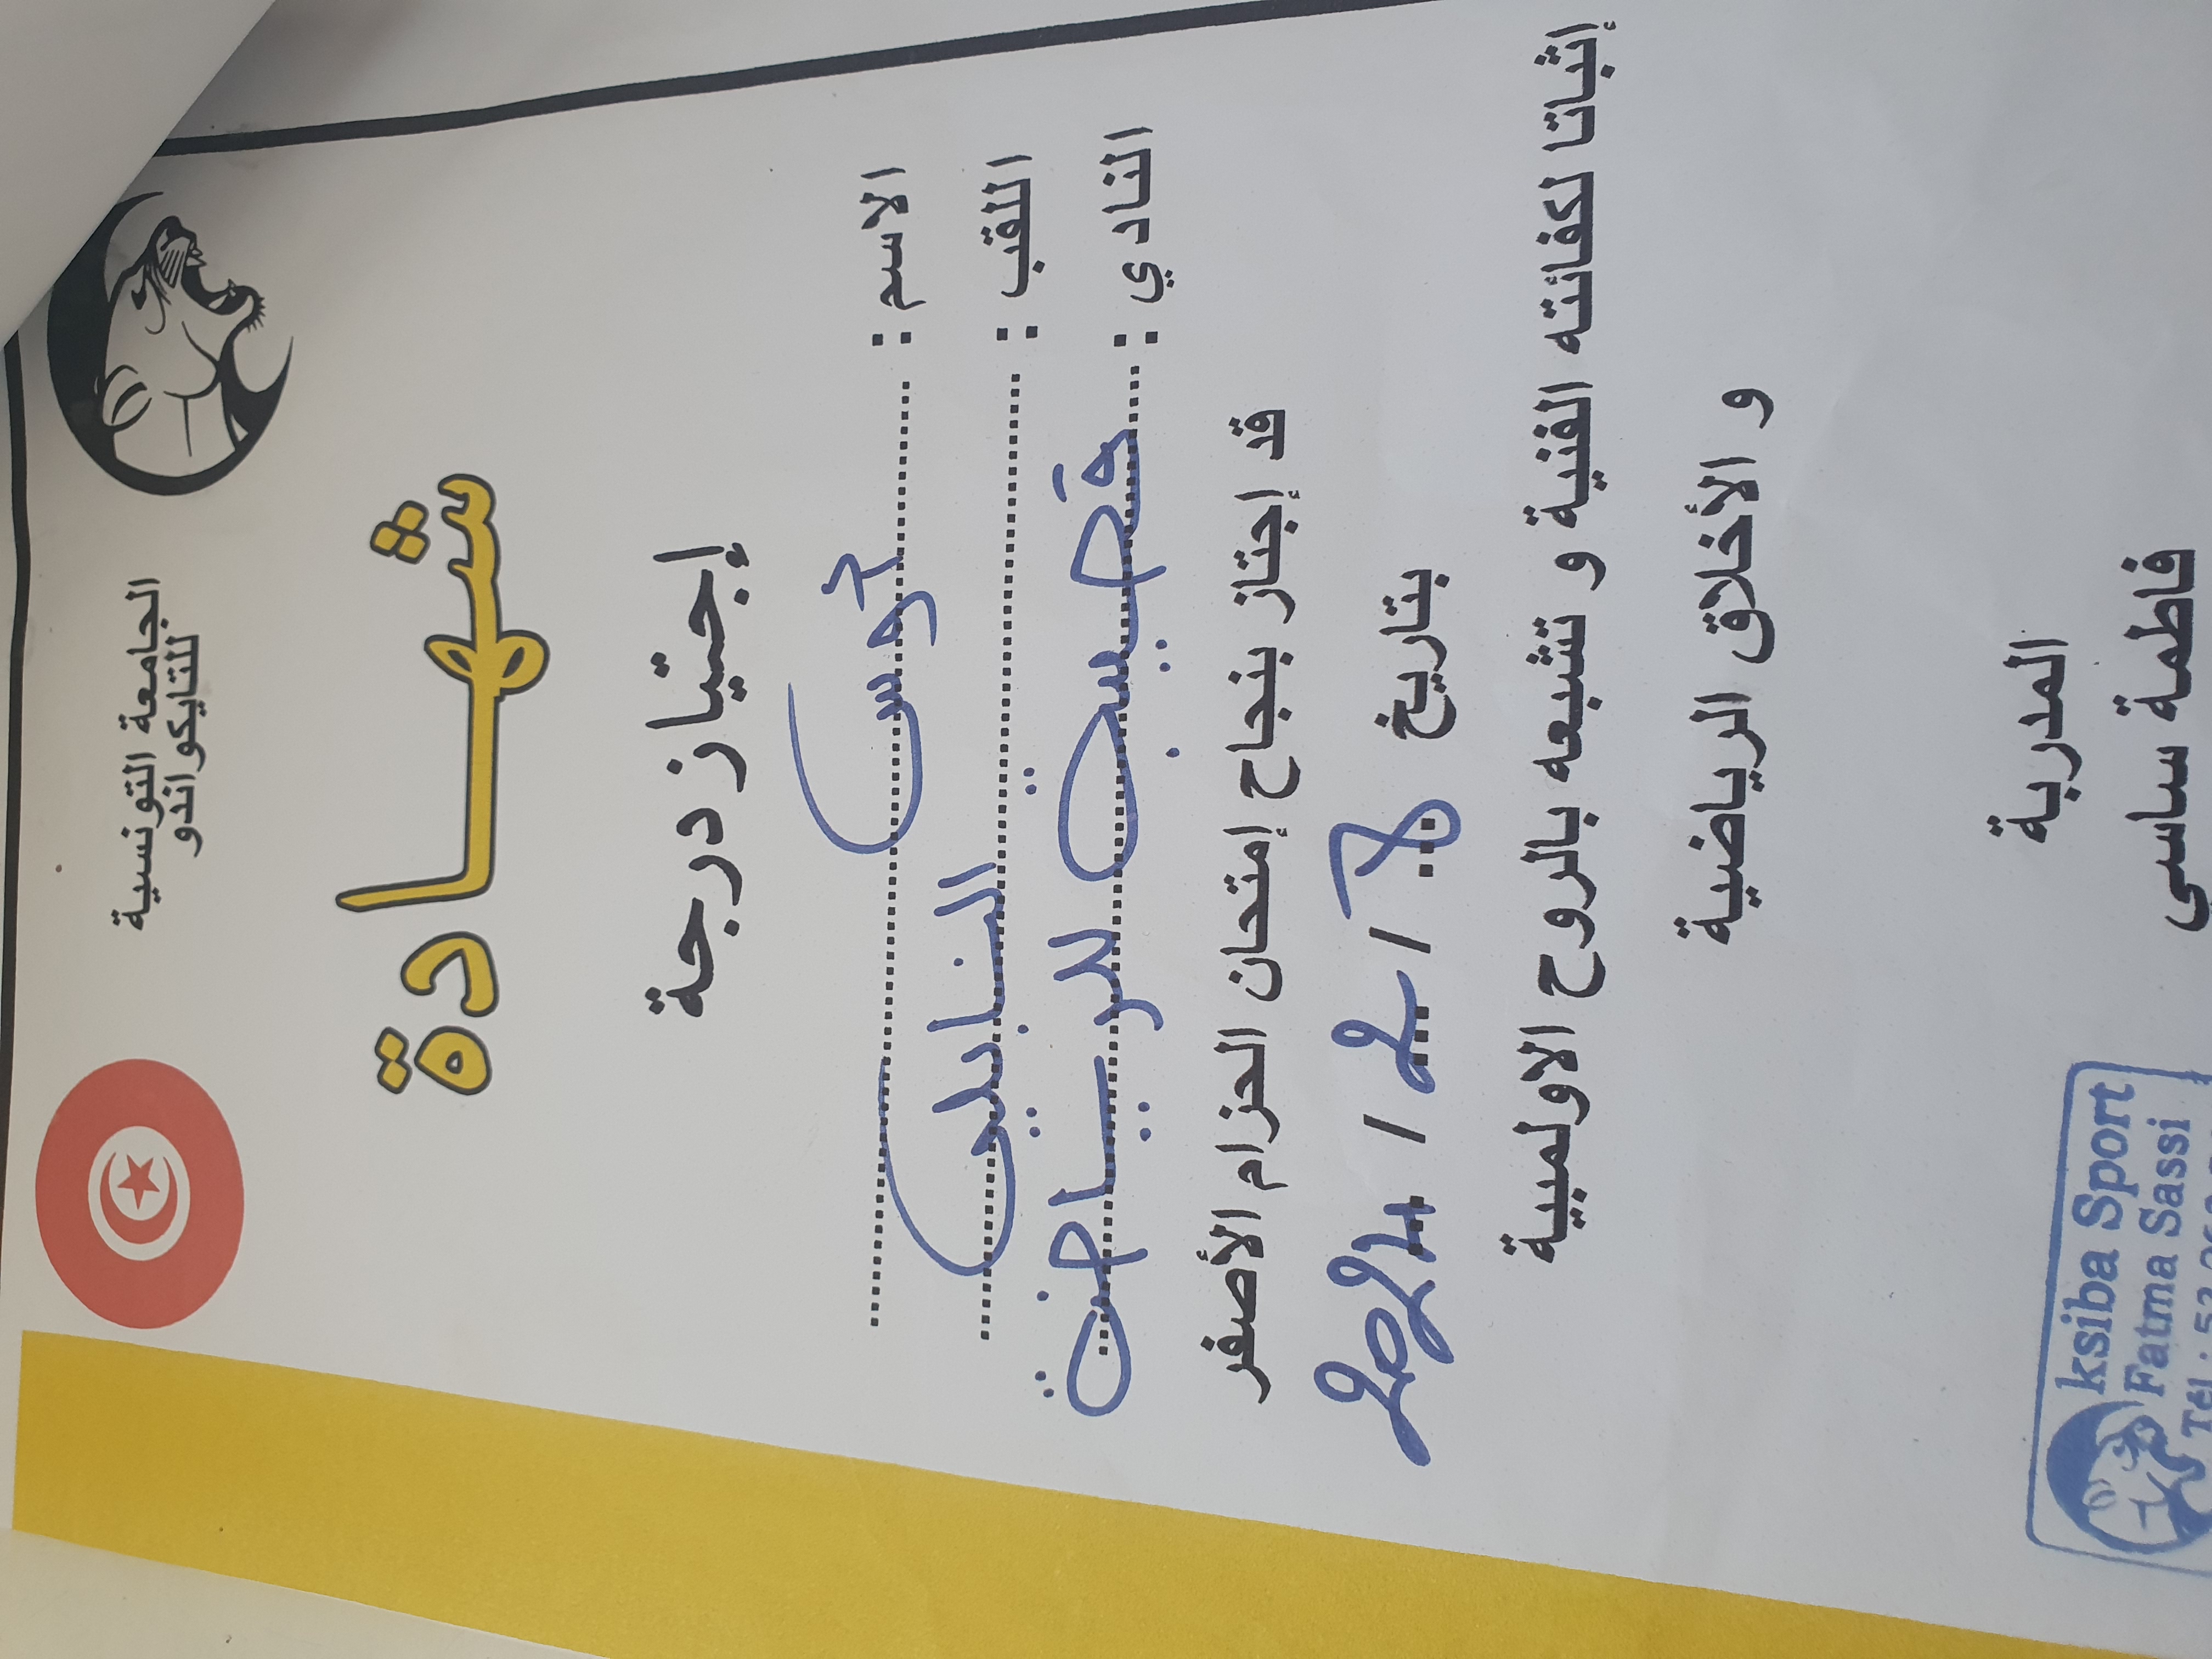 الجامعة التونسية
للتايكواندو
شهادة
إجتياز درجة
الاسم :
اللقب : النابلي
النادي : قصيبة للرياضة
قد إجتاز بنجاح إمتحان الحزام الأصفر
بتاريخ 8 / 2 / 2024
إثباتا لكفائته الفنية و تشبعه بالروح الاولمبية
و الأخلاق الرياضية
المدربة
فاطمة ساسي
ksiba Sport
Fatma Sassi
Tél :